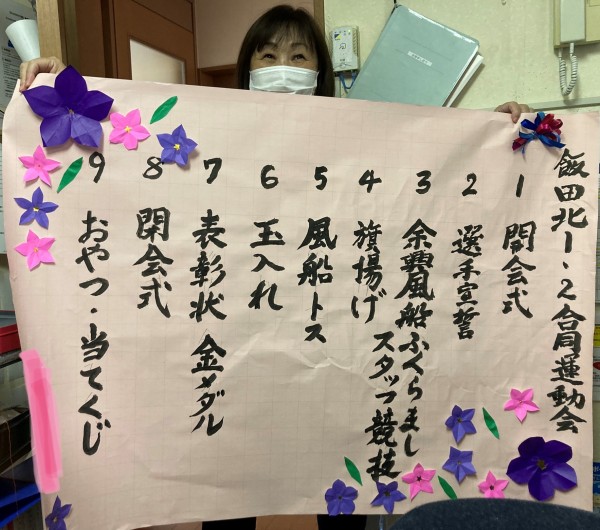 飯田北1・2合同運動会
1 開会式
2 選手宣誓
3 余興風船ふくらまし
スタッフ競技
4 旗揚げ
5 風船トス
6 玉入れ
7 表彰状 金メダル
8 閉会式
9 おやつ・当てくじ